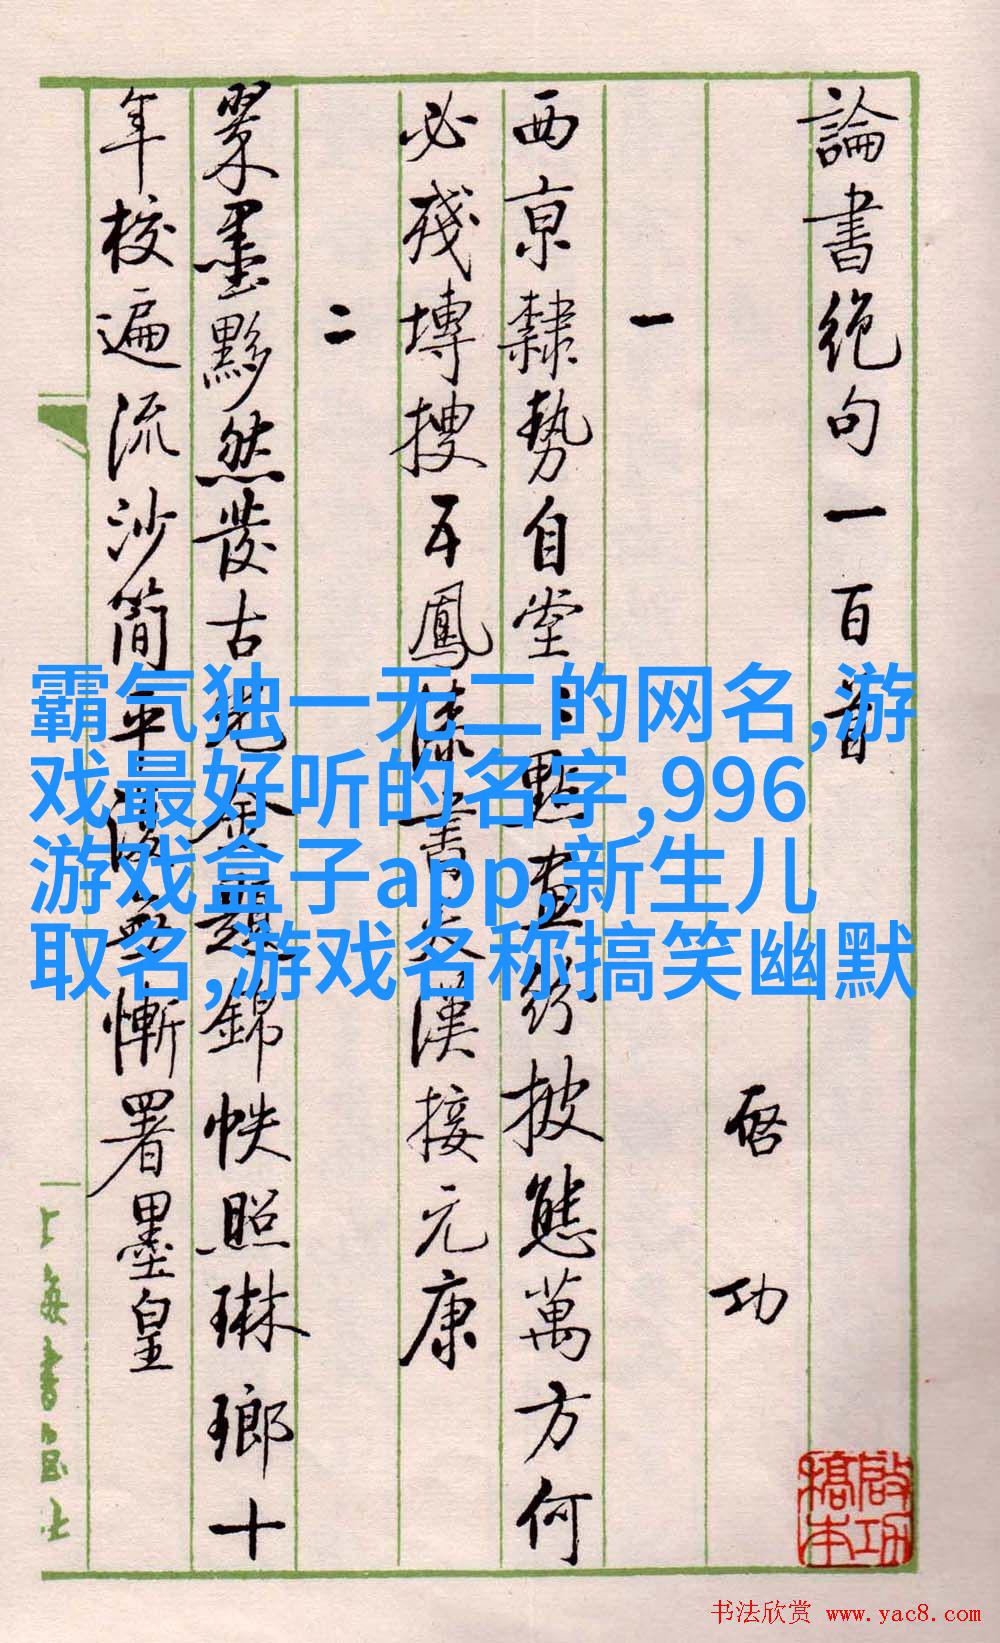 論書絶句一百首
啓功
一
西京隸勢自堂〻點畫紛披態萬方何
必殘塼搜五鳳漆書天漢接元康
二
翠墨黟然發古光金題錦帙照琳瑯十
年校遍流沙簡平復無慚署墨皇
霸气独一无二的网名,游
戏最好听的名字,996
游戏盒子app,新生儿
取名,游戏名称搞笑幽默
啟功
稿本
书法欣赏 www.yac8.com